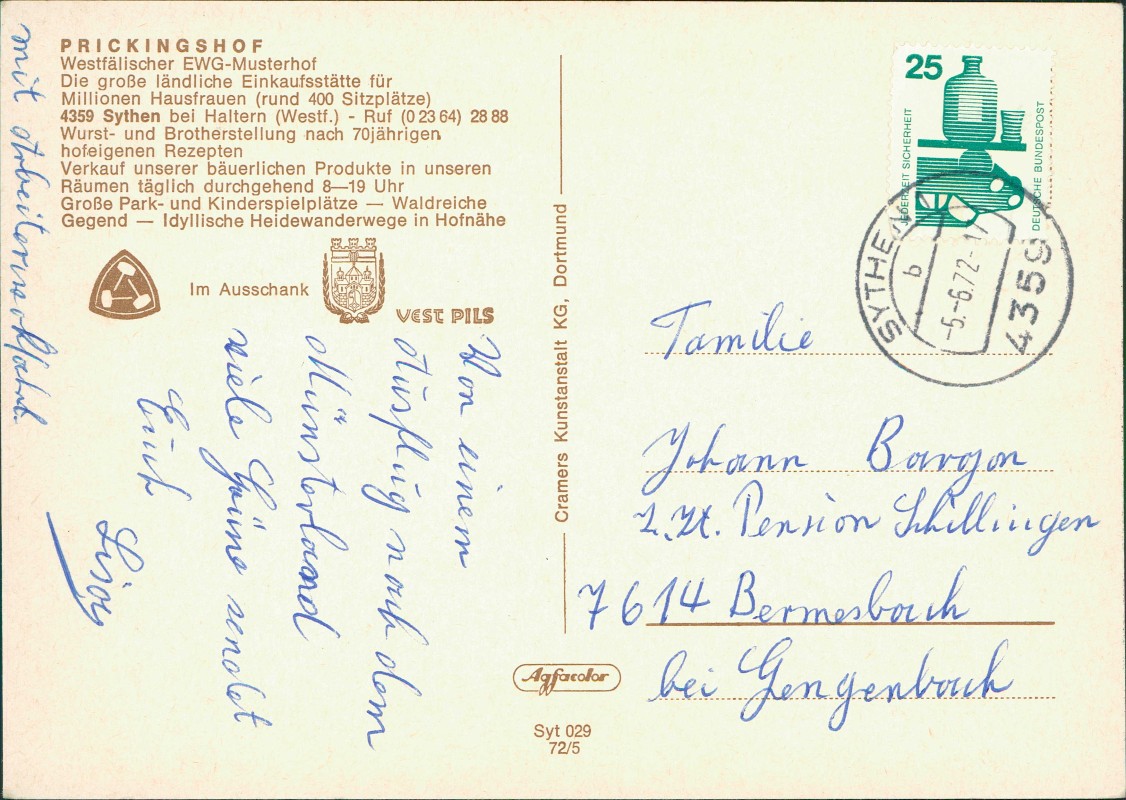 PRICKINGSHOF
Westfälischer EWG-Musterhof
Die große ländliche Einkaufsstätte für
Millionen Hausfrauen (rund 400 Sitzplätze)
4359 Sythen bei Haltern (Westf.) - Ruf (0 23 64) 28 88
Wurst- und Brotherstellung nach 70jährigen
hofeigenen Rezepten
Verkauf unserer bäuerlichen Produkte in unseren
Räumen täglich durchgehend 8—19 Uhr
Große Park- und Kinderspielplätze — Waldreiche
Gegend — Idyllische Heidewanderwege in Hofnähe
Im Ausschank
VEST PILS
Von einem
Ausflug nach dem
Münsterland
viele Grüße sendet
Euch
mit
Cramers Kunstanstalt KG, Dortmund
Agfacolor
Syt 029
72/5
25
JEDERZEIT SICHERHEIT
DEUTSCHE BUNDESPOST
SYTHEN
b
-5.-6.72-17
4359
Familie
Johann Bargon
z.Zt. Pension Schillingen
7614 Bermesbach
bei Gengenbach